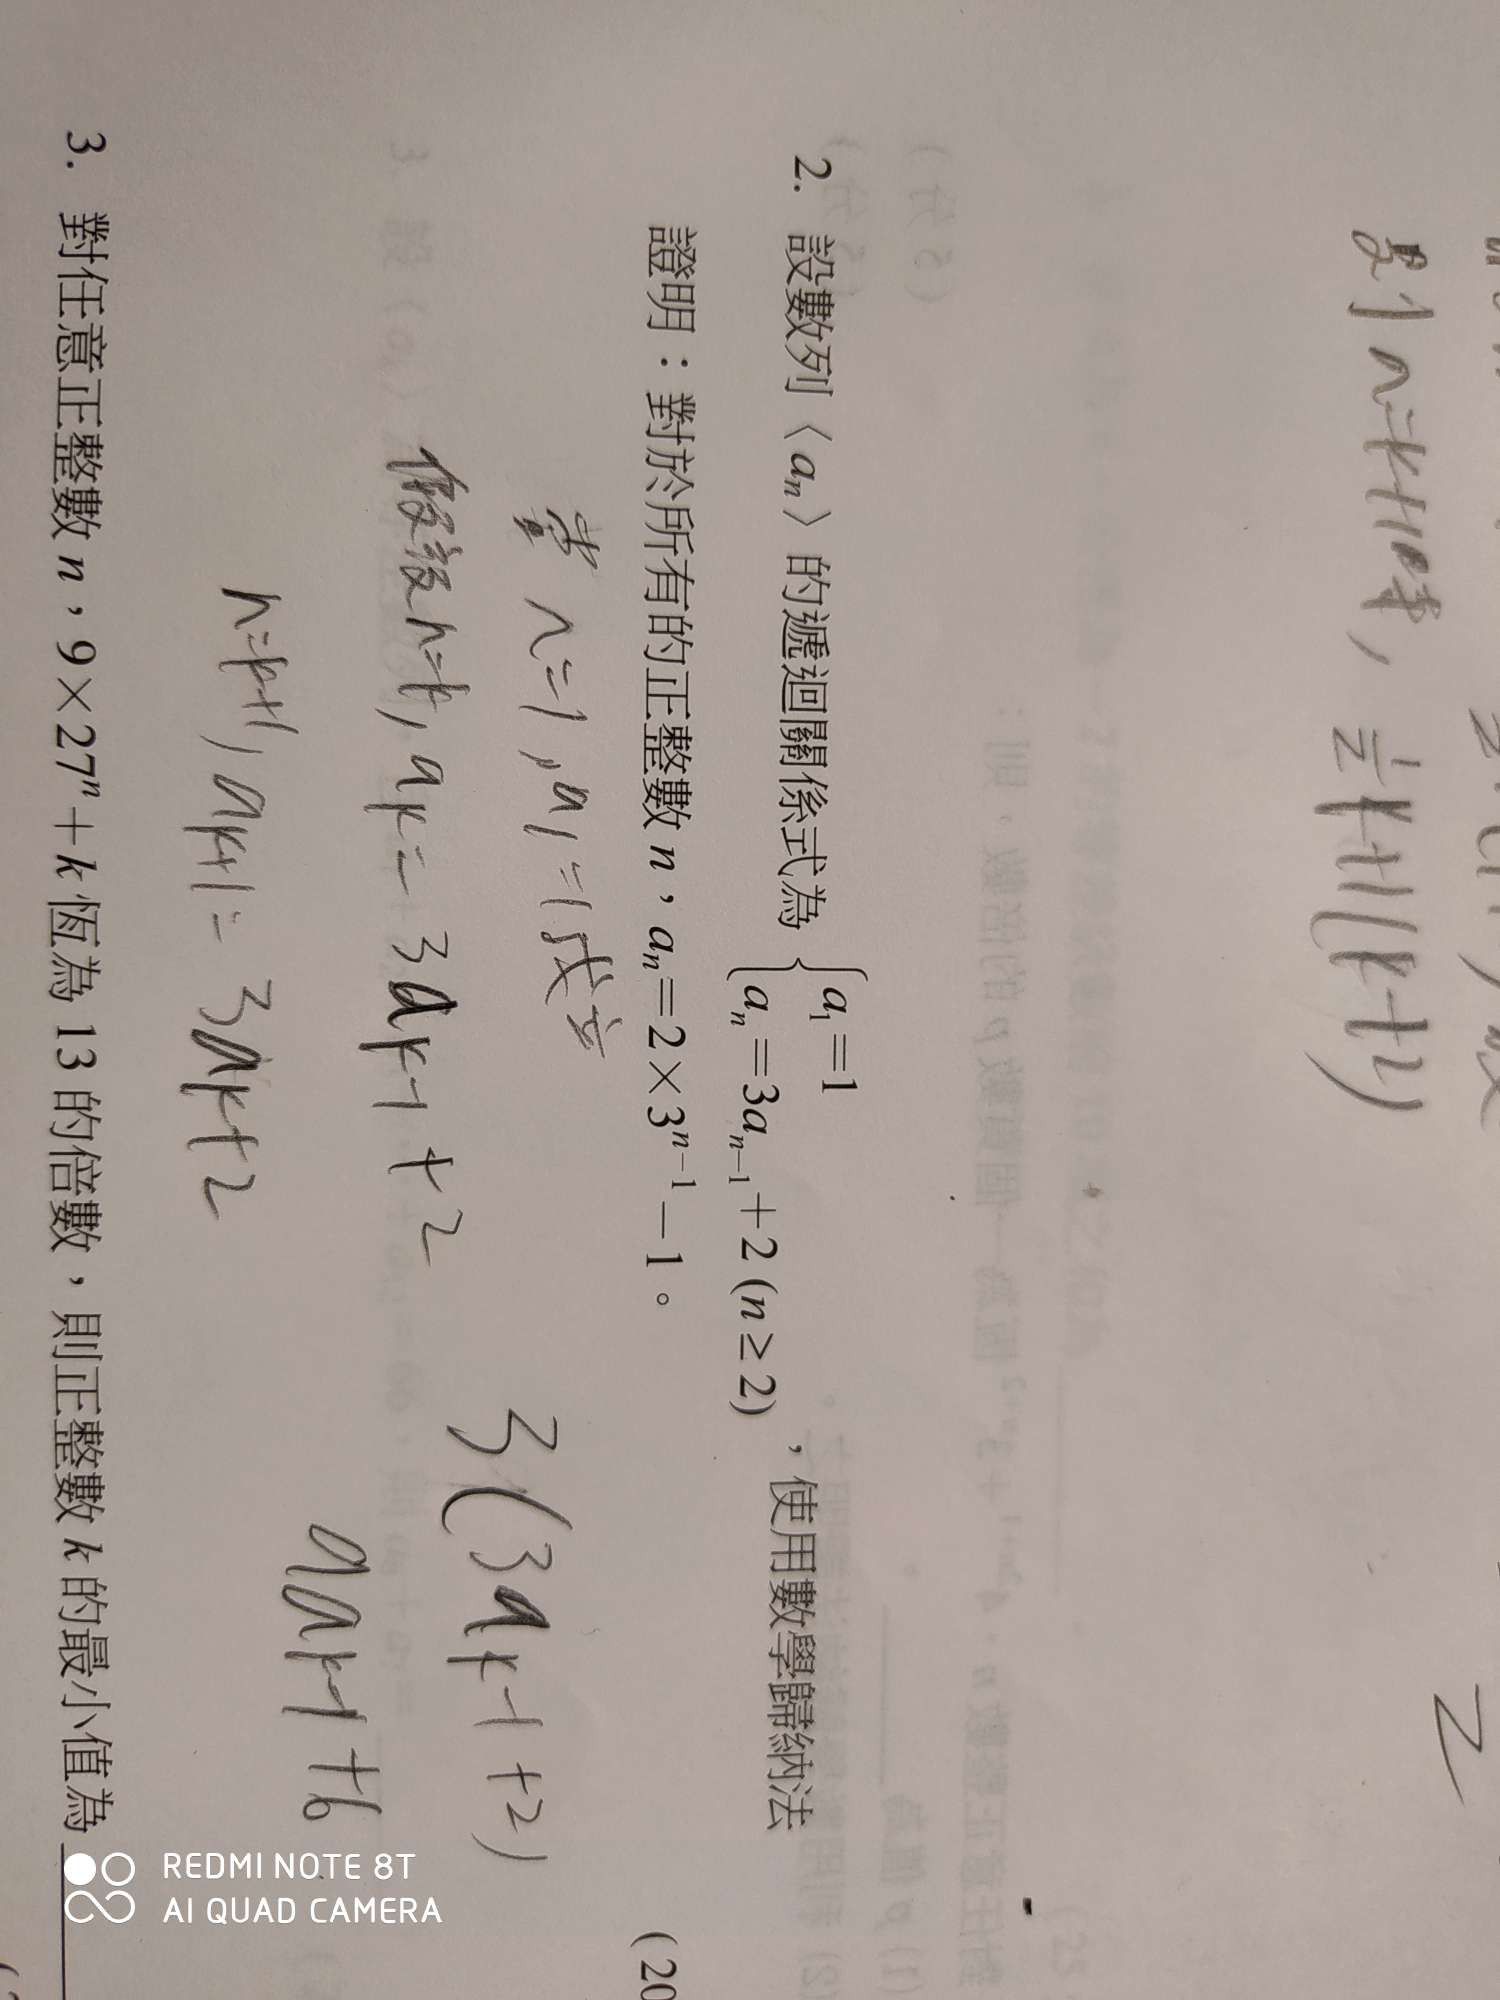 則n=k+1時，½k+1(k+2)
2. 設數列〈aₙ〉的遞迴關係式為 { a₁=1
aₙ=3aₙ₋₁+2 (n≥2) ，使用數學歸納法
證明：對於所有的正整數 n，aₙ=2×3ⁿ⁻¹−1。
(20
當 n=1, a₁=1成立
假設n=k, aₖ=3aₖ₋₁+2
3(3aₖ₋₁+2)
n=k+1, aₖ₊₁=3aₖ+2
aaₖ₋₁+6
3. 對任意正整數 n，9×27ⁿ+k 恆為 13 的倍數，則正整數 k 的最小值為
REDMI NOTE 8T
AI QUAD CAMERA